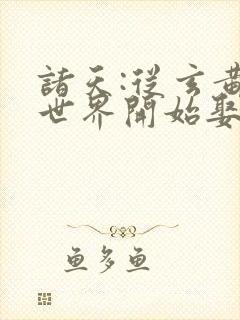 諸天:從玄黃
世界開始娶
魚多魚